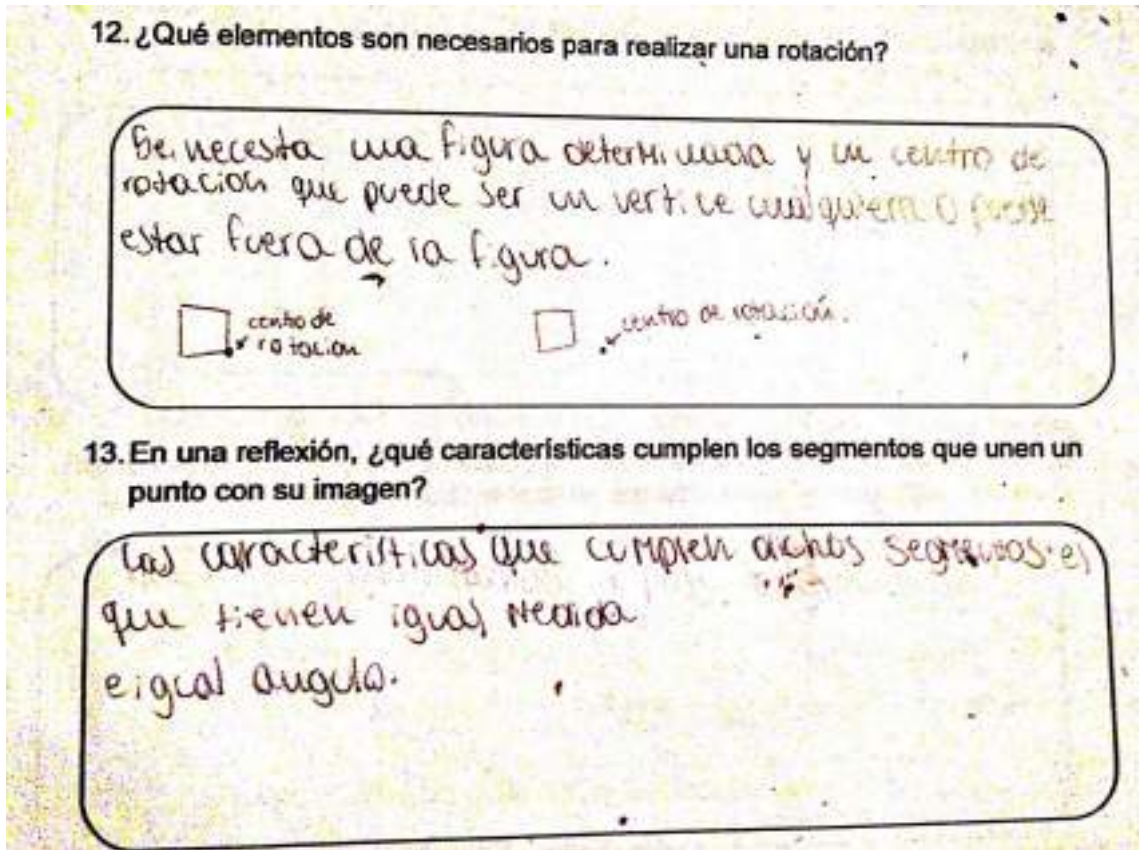 12. ¿Qué elementos son necesarios para realizar una rotación?
Se necesita una figura determinada y un centro de
rotación que puede ser un vertice cualquiera o puede
estar fuera de la figura.
centro de
rotacion
centro de rotación.
13. En una reflexión, ¿qué características cumplen los segmentos que unen un
punto con su imagen?
Las características que cumplen dichos segmentos es
que tienen igual medida
e igual angulo.